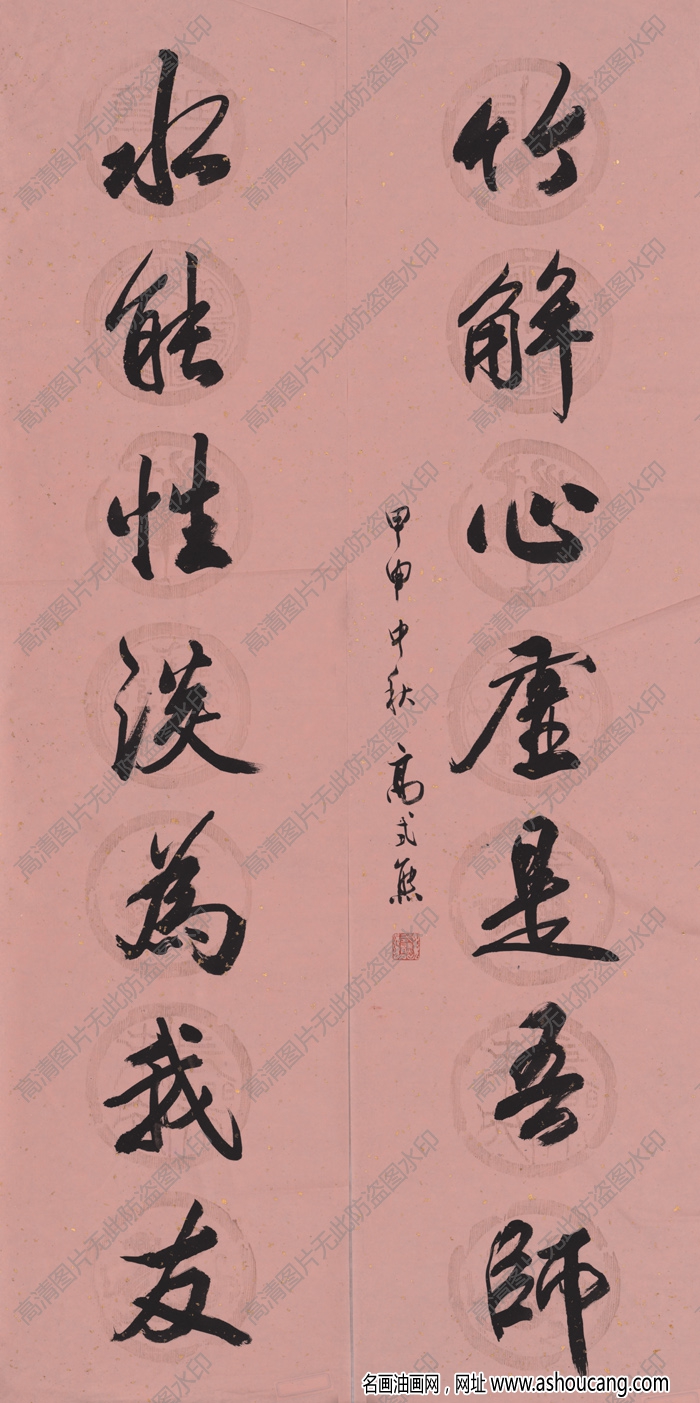 竹解心虛是吾師
水能性淡為我友
甲申中秋 高式熊
高清图片无此防盗图水印
名画油画网，网址 www.ashoucang.com